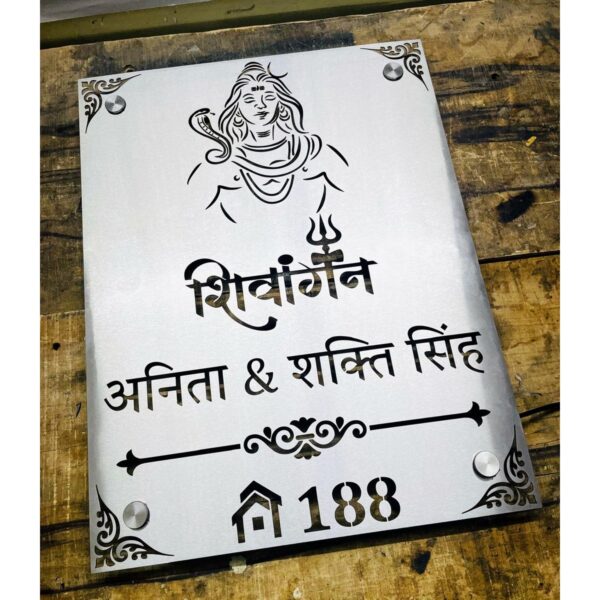 शिवांगन
अनिता & शक्ति सिंह
188